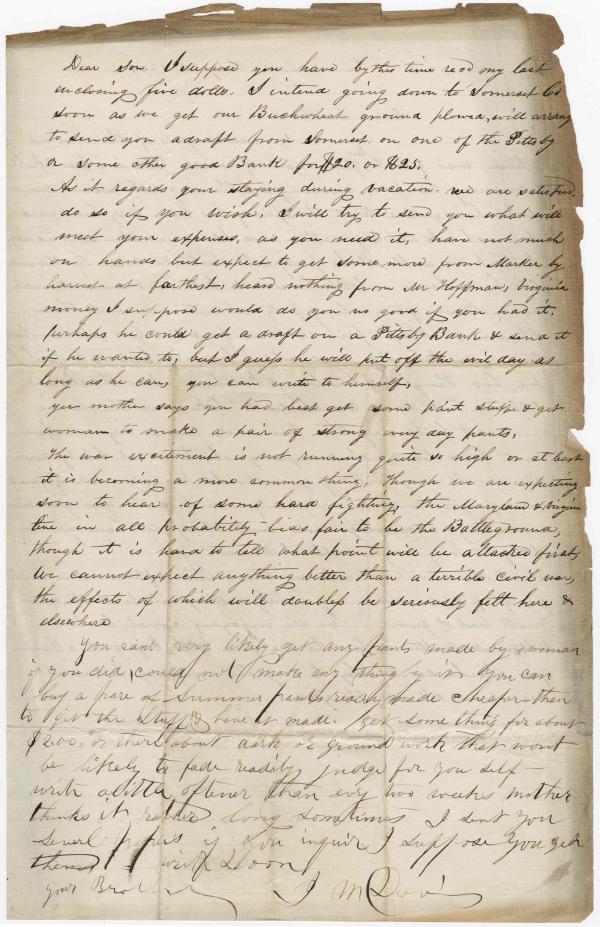 Dear son I suppose you have by this time recd my last
inclosing five dolls. I intend going down to Somerset Co
soon as we get our Buckwheat ground plowed, will arrang
to send you a draft from Somerset on one of the Pitsbg
or some other good Bank for $20. or $25.
As it regards your staying during vacation. we are satisfied
do so if you wish, I will try to send you what will
meet your expenses, as you need it, have not much
on hands but expect to get some more from Marker by
harvest at farthest, heard nothing from Mr Hoffman, virginia
money I suppose would do you no good if you had it.
perhaps he could get a draft on a Pitsbg Bank & send it
if he wanted to, but I guess he will put off the evil day as
long as he can, you can write to himself,
your mother says you had best get some pant stuff & get
woman to make a pair of strong every day pants,
The war excitement is not running quite so high or at least
it is becoming a more common thing, Though we are expecting
soon to hear of some hard fighting, the Maryland & virginia
line in all probability bias fair to be the Battleground,
though it is hard to tell what point will be attacked first,
We cannot expect anything better than a terrible civil war,
the effects of which will doubless be seriously felt here &
elsewhere
You cant very likely get any pants made by a woman
if you did, could not make any thing by it you can
buy a pare of summer pants ready made cheaper than
to git the stuff & have it made. get some thing for about
$2.00. or there about dark or ground work that wont
be likely to fade readily judge for you self
write a little oftener than evry two weeks mother
thinks it rather long sometimes I sent you
severl papers if you inquir I suppose you get
them write soon
your Brother I M